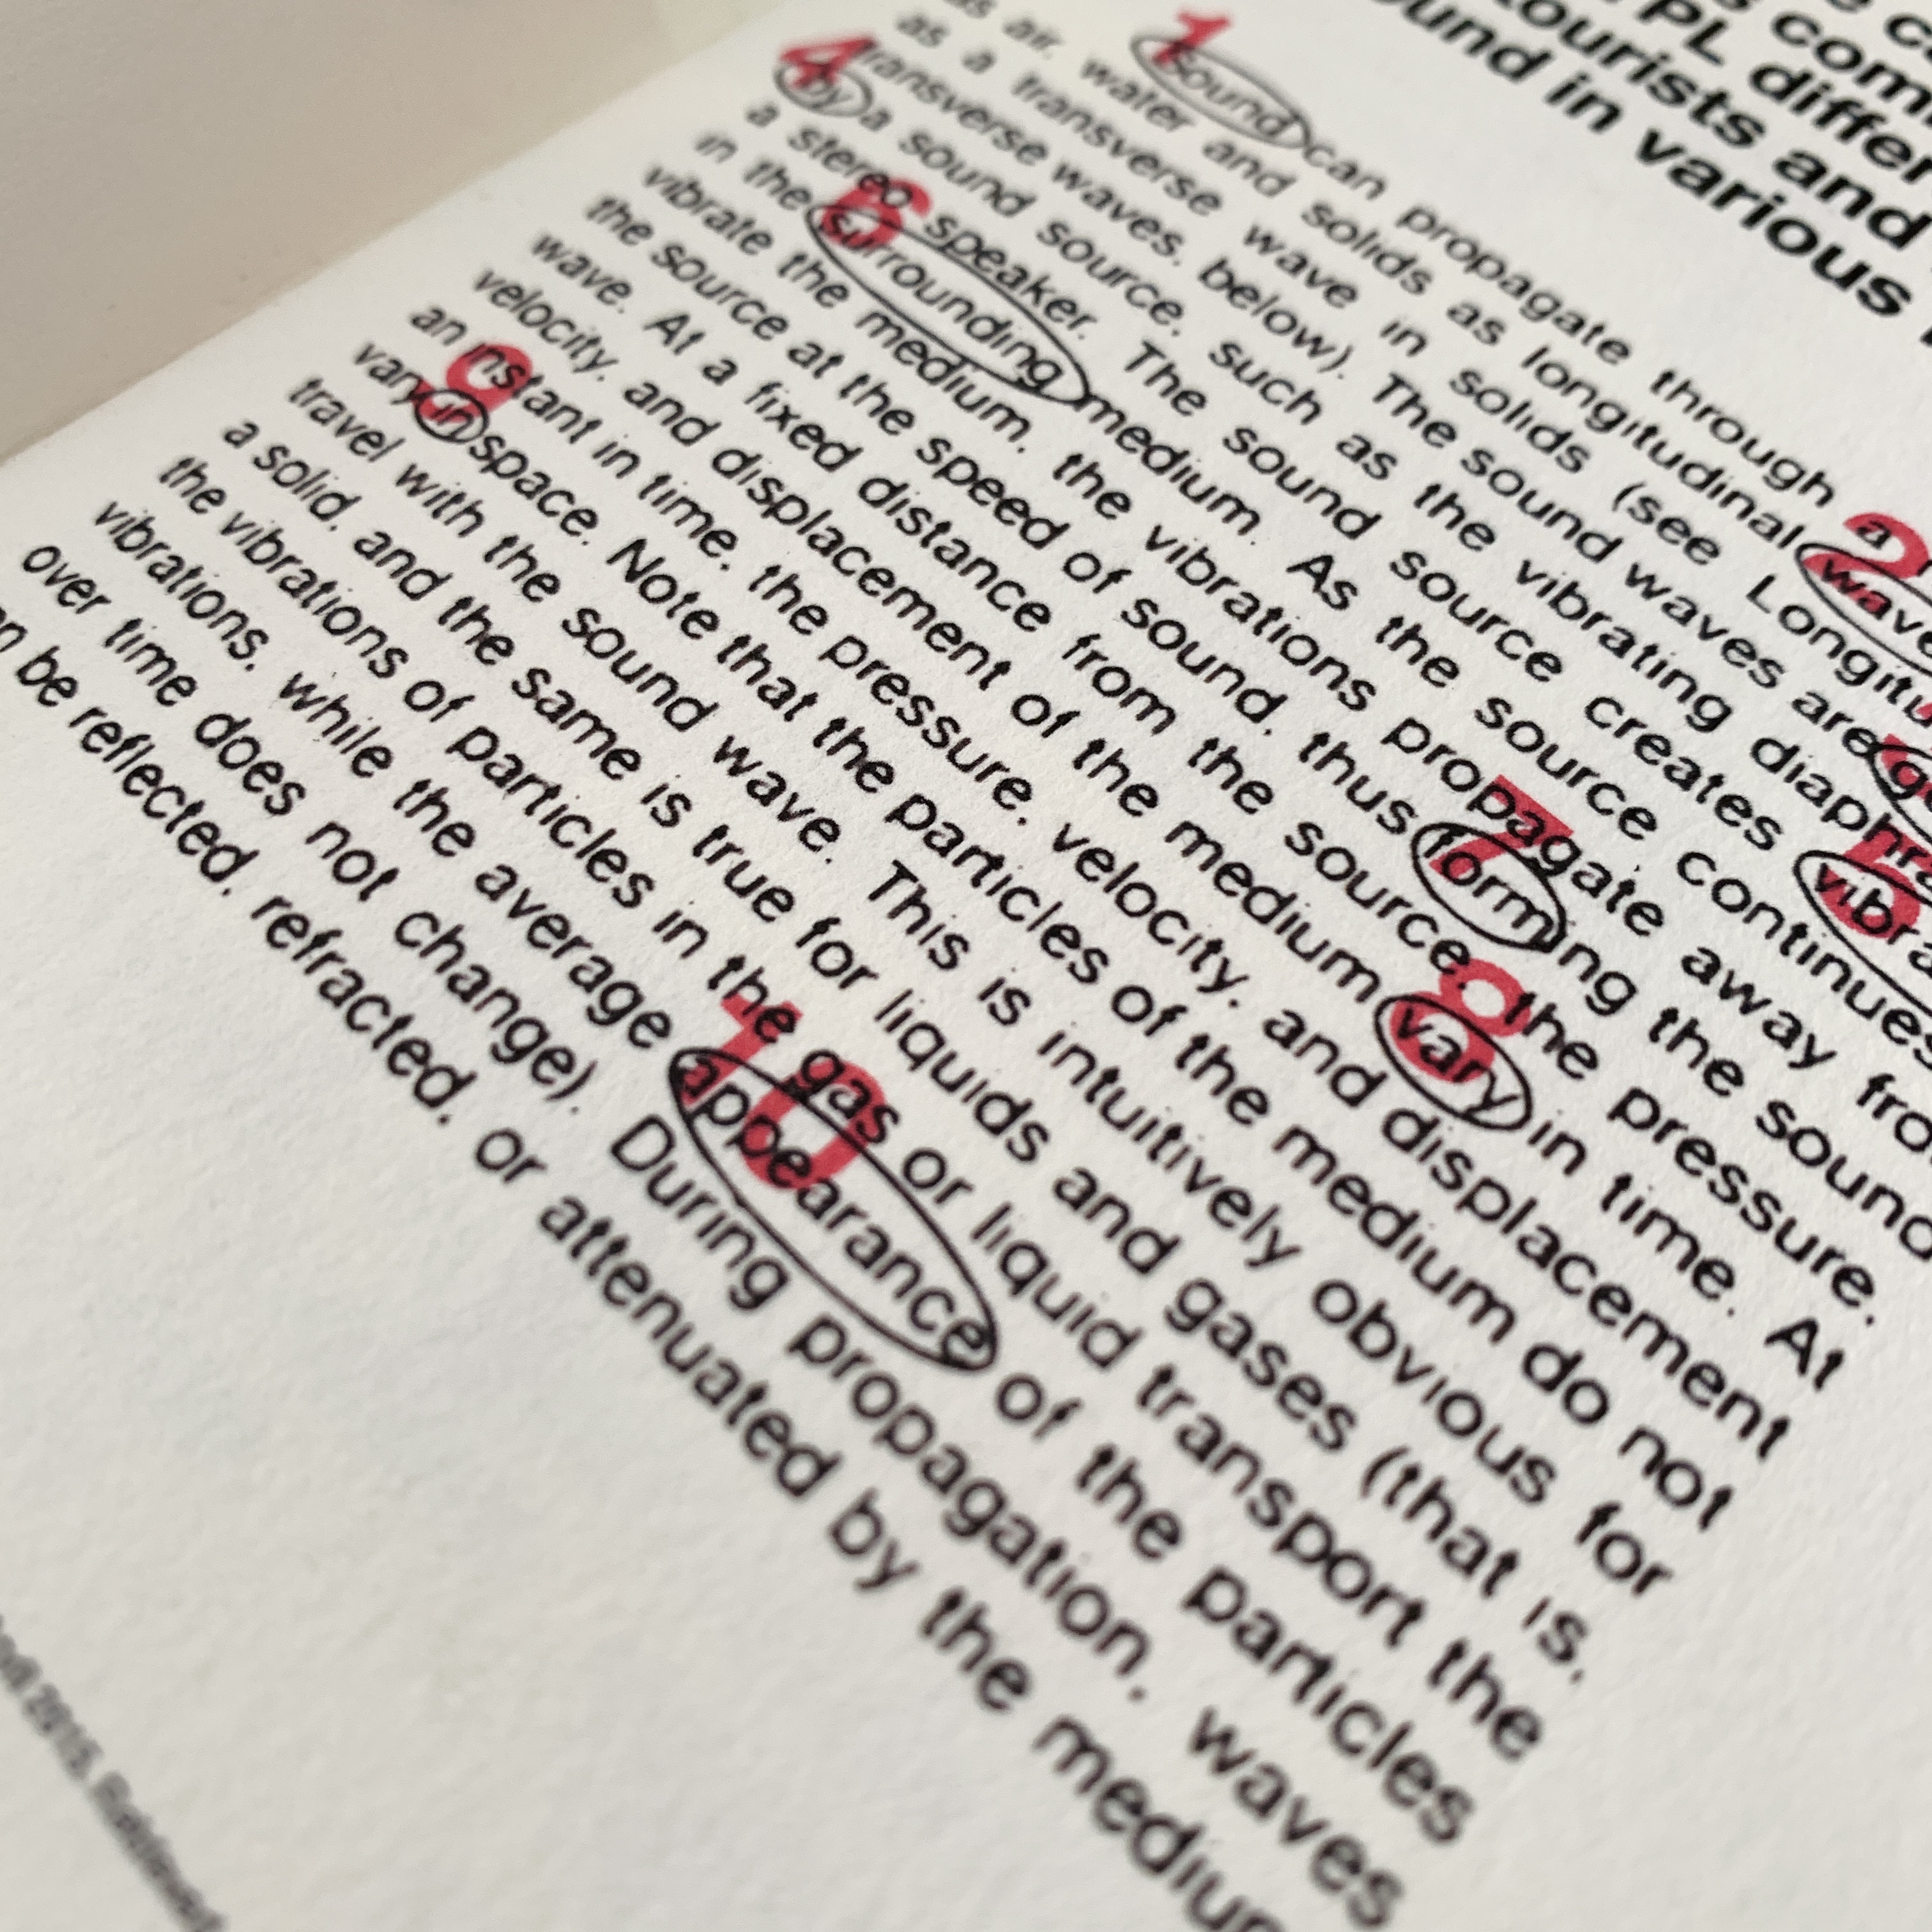 com
PL differ
tourists and
und in various
1
sound can propagate through a
2
as air, water and solids as longitudinal wave
as a transverse wave in solids (see Longitu
transverse waves, below). The sound waves are g
4
by a sound source, such as the vibrating diaphra
5
a stereo speaker. The sound source creates vibra
6
in the surrounding medium. As the source continues
vibrate the medium, the vibrations propagate away fro
7
the source at the speed of sound, thus forming the sound
wave. At a fixed distance from the source, the pressure,
8
velocity, and displacement of the medium vary in time. At
an instant in time, the pressure, velocity, and displacement
9
vary in space. Note that the particles of the medium do not
travel with the sound wave. This is intuitively obvious for
a solid, and the same is true for liquids and gases (that is,
the vibrations of particles in the gas or liquid transport the
10
vibrations, while the average appearance of the particles
over time does not change). During propagation, waves
n be reflected, refracted, or attenuated by the medium
2015,